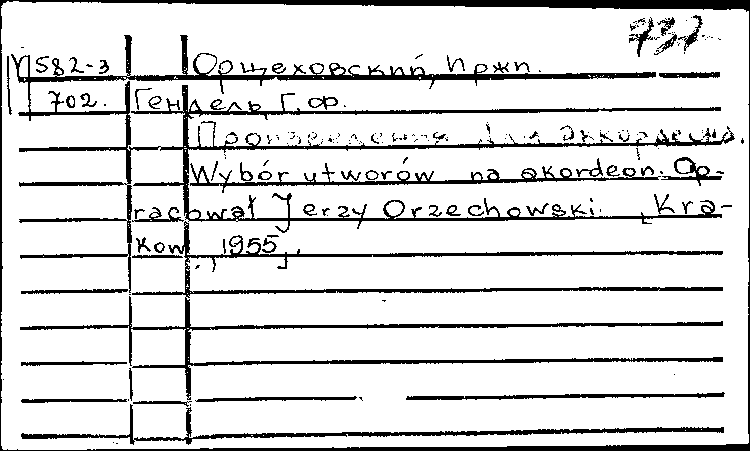 737
M582-3 Орщеховский, Иржи.
702. Гендель, Г.Ф.
Произведения для аккордеона.
Wybór utworów na akordeon. Op-
racował Jerzy Orzechowski. [Kra-
kow, 1955].